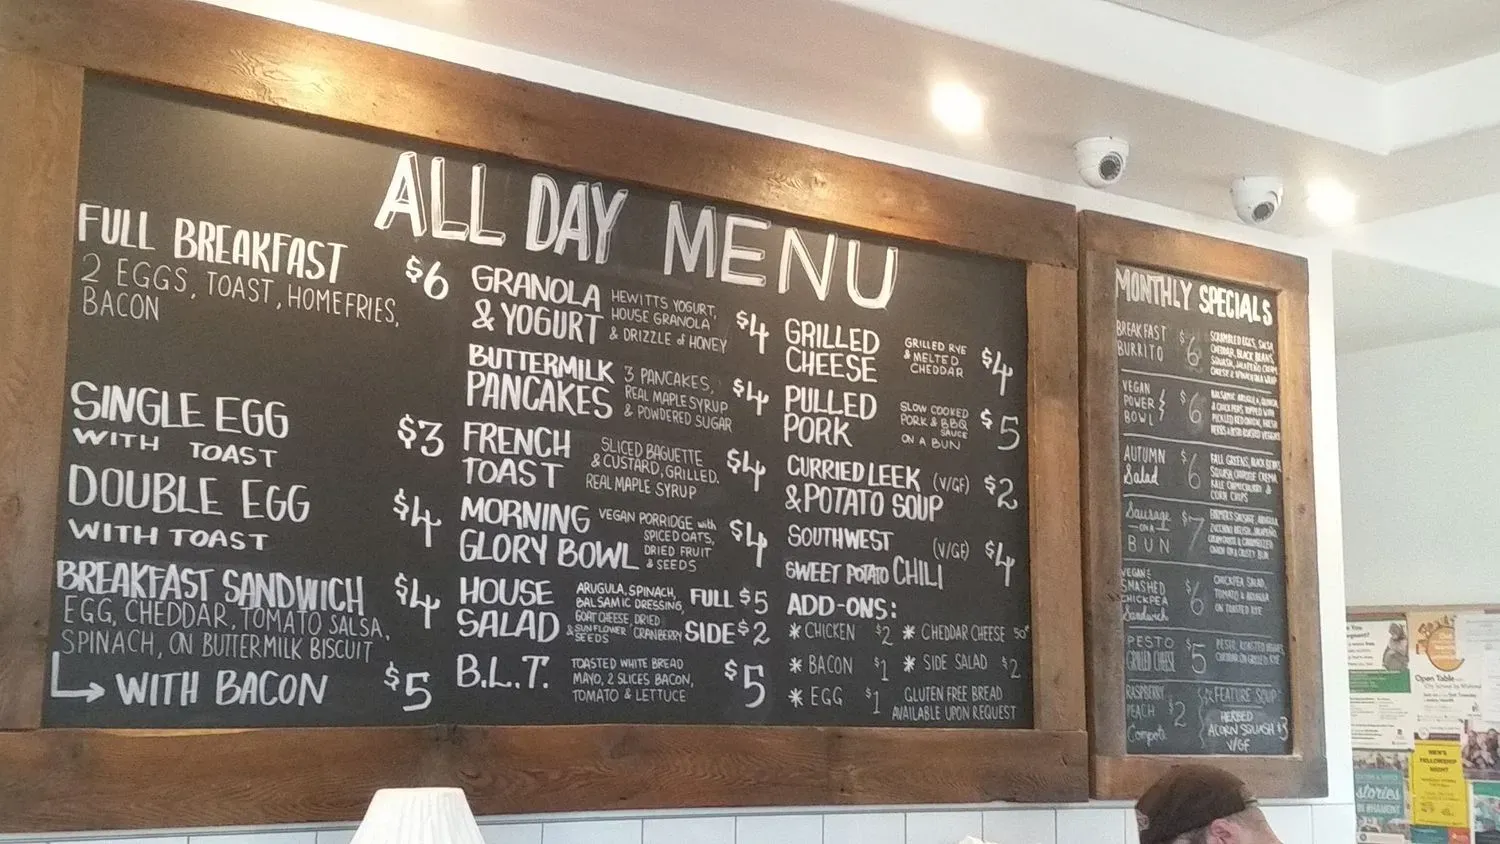 ALL DAY MENU
FULL BREAKFAST $6
2 EGGS, TOAST, HOMEFRIES,
BACON
SINGLE EGG
WITH TOAST $3
DOUBLE EGG
WITH TOAST $4
BREAKFAST SANDWICH $4
EGG, CHEDDAR, TOMATO SALSA,
SPINACH, ON BUTTERMILK BISCUIT
WITH BACON $5
GRANOLA
& YOGURT
HEWITTS YOGURT,
HOUSE GRANOLA
& DRIZZLE of HONEY
$4
BUTTERMILK
PANCAKES
3 PANCAKES,
REAL MAPLE SYRUP
& POWDERED SUGAR
$4
FRENCH
TOAST
SLICED BAGUETTE
& CUSTARD, GRILLED.
REAL MAPLE SYRUP
$4
MORNING
GLORY BOWL
VEGAN PORRIDGE with
SPICED OATS,
DRIED FRUIT
& SEEDS
$4
HOUSE
SALAD
ARUGULA, SPINACH,
BALSAMIC DRESSING,
GOAT CHEESE, DRIED
& SUNFLOWER CRANBERRY
SEEDS
FULL $5
SIDE $2
B.L.T.
TOASTED WHITE BREAD
MAYO, 2 SLICES BACON,
TOMATO & LETTUCE
$5
GRILLED
CHEESE
GRILLED RYE
& MELTED
CHEDDAR
$4
PULLED
PORK
SLOW COOKED
PORK & BBQ
SAUCE
ON A BUN
$5
CURRIED LEEK (V/GF) $2
& POTATO SOUP
SOUTHWEST (V/GF) $4
SWEET POTATO CHILI
ADD-ONS:
* CHICKEN $2 * CHEDDAR CHEESE 50¢
* BACON $1 * SIDE SALAD $2
* EGG $1
GLUTEN FREE BREAD
AVAILABLE UPON REQUEST
MONTHLY SPECIALS
BREAKFAST
BURRITO
$6
SCRAMBLED EGGS, SALSA
CHEDDAR, BLACK BEANS,
SQUASH, JALAPEÑO CREAM
CHEESE & SPINACH IN A WRAP
VEGAN
POWER
BOWL
$6
BALSAMIC ARUGULA, QUINOA
& CHICKPEAS TOPPED WITH
PICKLED RED ONION, FRESH
HERBS & PESTO ROASTED VEGGIES
AUTUMN
Salad
$6
FALL GREENS, BLACK BEANS
SQUASH, CHIPOTLE CREMA,
KALE CHIMICHURRI &
CORN CHIPS
Sausage
ON A
BUN
$7
FARMERS SAUSAGE, ARUGULA,
ONION ON A CRUSTY BUN
VEGAN
SMASHED
CHICKPEA
Sandwich
$6
CHICKPEA SALAD,
TOMATO & ARUGULA
ON TOASTED RYE
PESTO
GRILLED CHEESE
$5
PESTO, ROASTED VEGGIES,
CHEDDAR ON GRILLED RYE
RASPBERRY
PEACH
Compote
$2
FEATURE SOUP
HERBED
ACORN SQUASH $3
V/GF
Open Table
MEN'S
FELLOWSHIP
NIGHT
stories